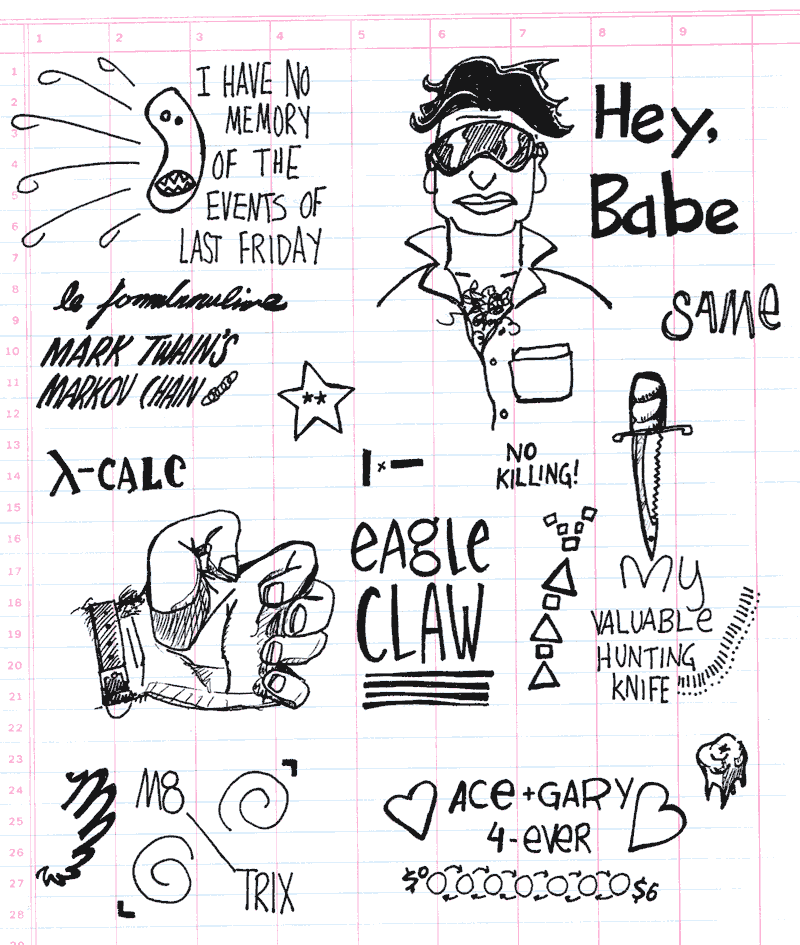 1 2 3 4 5 6 7 8 9
1
2
3
4
5
6
7
8
9
10
11
12
13
14
15
16
17
18
19
20
21
22
23
24
25
26
27
28
I HAVE NO
MEMORY
OF THE
EVENTS OF
LAST FRIDAY
Hey,
Babe
SAME
le
MARK TWAIN'S
MARKOV CHAIN
**
λ-CALC
NO
KILLING!
EAGLE
CLAW
My
VALUABLE
HUNTING
KNIFE
M8
TRIX
ACE+GARY
4-EVER
$0
$6